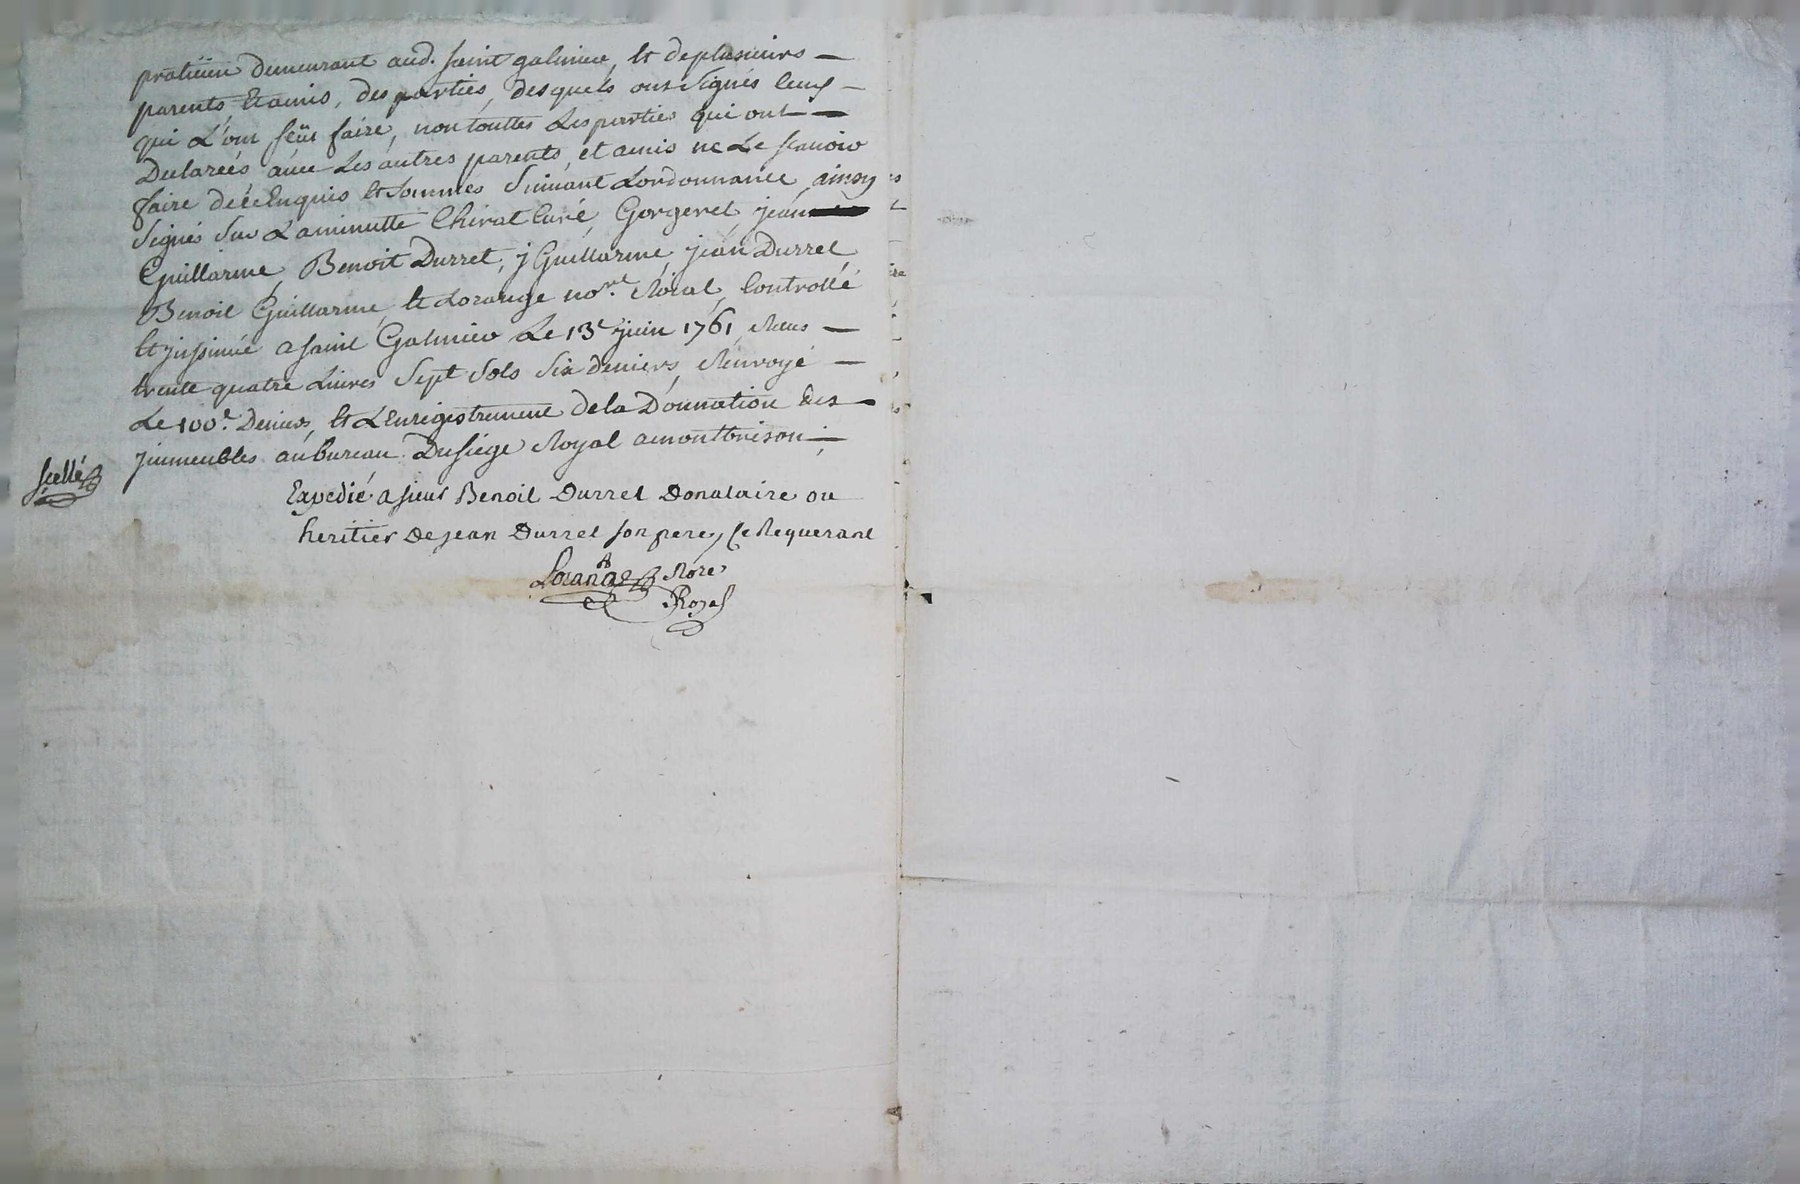 pratiçien demeurant aud. saint galmier, et de plusieurs —
parents et amis, des parties, desquels ont signés ceux —
qui L'ont sçüs faire, non touttes Les parties qui ont —
Declareés avec Les autres parents, et amis ne Le scavoir
faire de ce Enquis et sommés suivant Lordonnance, ainsy
signés sur La minutte Chirat Curé, Gorgeret, jean
Guillarme, Benoit Durret, j Guillarme, jean Durret
Benoit Guillarme, et Lorange no.re Roial, Controllé
et jnsinué a saint Galmier Le 13e juin 1761, Reçus —
trente quatre Livres sept sols six deniers, Renvoyé —
Le 100.e Deniers, et L'Enregistrement de la Donnation des —
jmmeubles au bureau Du siége Royal a montbrison ;
scellé
Expedié a sieur Benoit Durret Donataire ou
heritier De jean Durret son pere, Ce Requerant
Lorange No.re
Royal